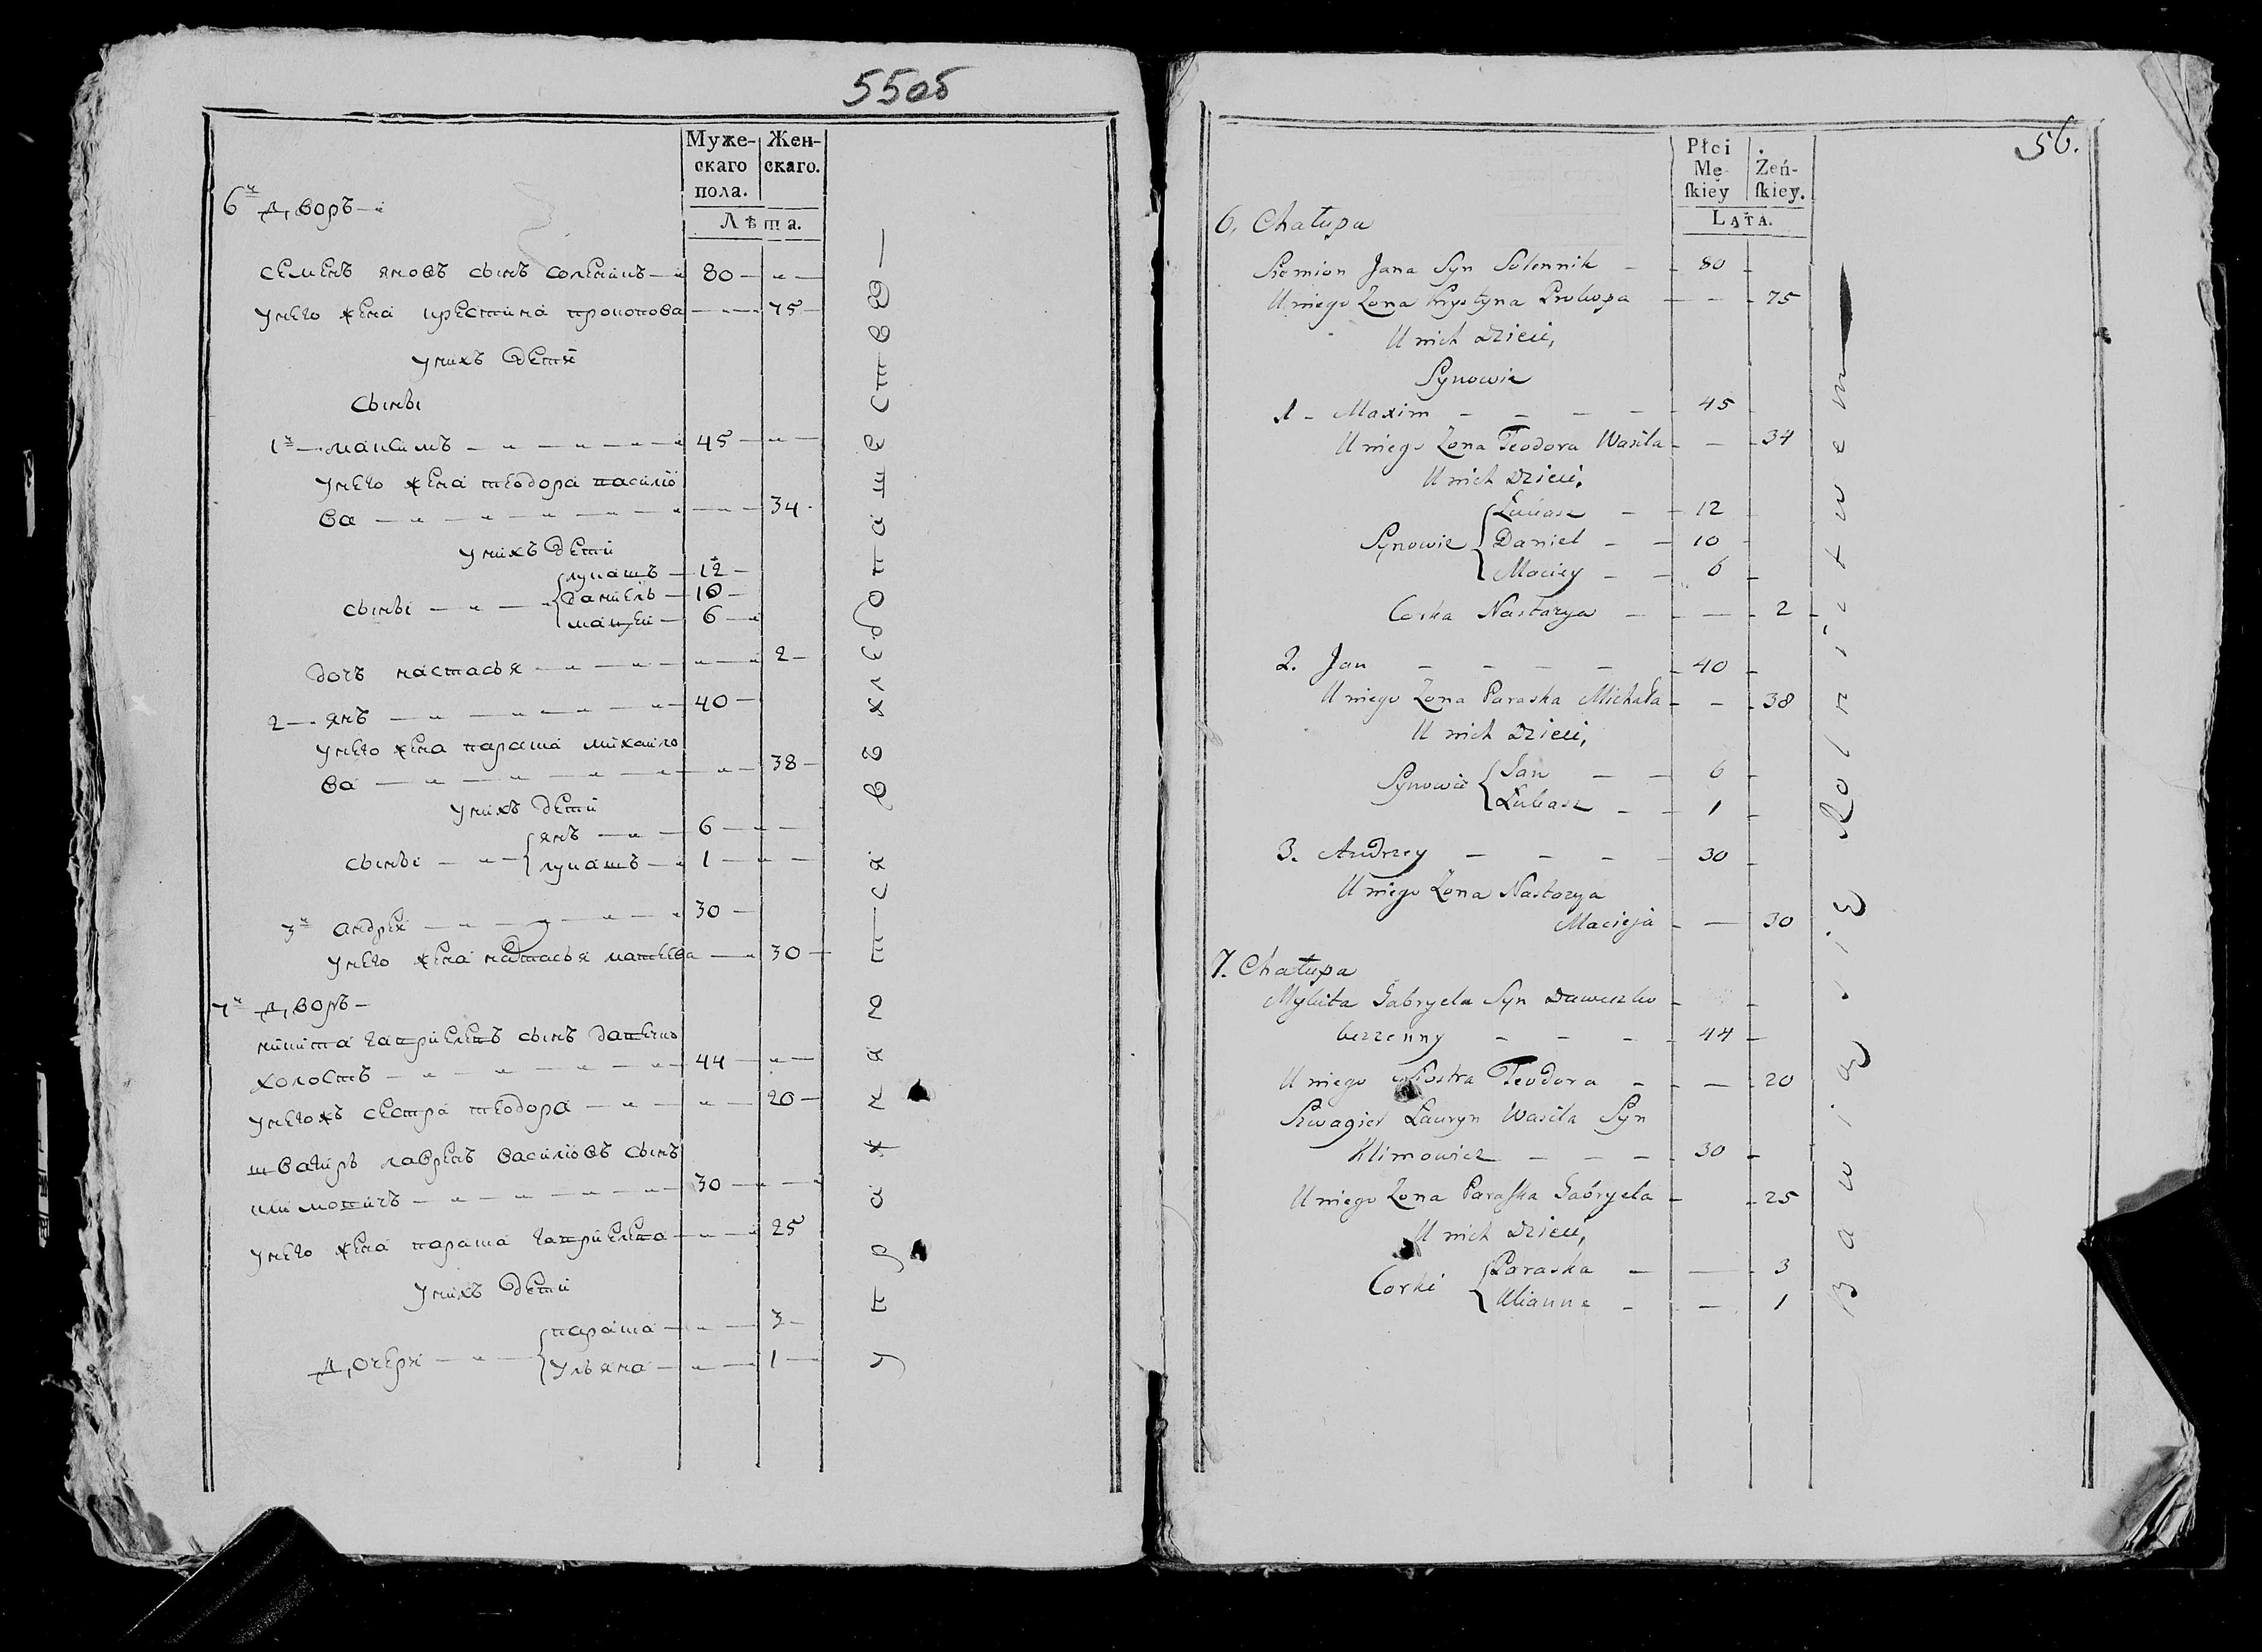 55об
Муже- Жен-
скаго скаго.
пола.
Лѣта.
6й Дворъ
Семенъ яновъ сынъ 80
Унего жена кристина прокопова 75
Унихъ дети
Сыны
1й максимъ 45
Унего жена теодора василіо
ва 34
Унихъ дети
лукашъ 12
сыны данiель 10
мацей 6
дочь настасья 2
2 янъ 40
Унего жена параша михайло
ва 38
Унихъ дети
янъ 6
сыны
лукашъ 1
3й андрей 30
Унего жена настасья матеева 30
7й Дворъ
микита гавриелевъ сынъ
холостъ 44
Унегожъ сестра теодора 20
швагиръ лавренъ василіовъ сынъ
климовичъ 30
Унего жена параша гавриелева 25
Унихъ дети
параша 3
Дочери
Ульяна 1
Упражняется в хлебопашестве
56.
Płci Żeń-
Mę skiey.
skiey
LATA.
6. Chałupa
Siemion Jana Syn Solennik 80
U niego Żona Krystyna Prokopa 75
U nich Dzieci,
Synowie
1 Maxim 45
U niego Żona Teodora Wasila 34
U nich Dzieci,
Łukasz 12
Synowie Daniel 10
Maciey 6
Corka Nastazya 2
2. Jan 40
U niego Żona Paraska Michała 38
U nich Dzieci,
Jan 6
Synowie
Łukasz 1
3. Andrzey 30
U niego Żona Nastazya
Macieja 30
7. Chałupa
Mykita Gabryela Syn
bezzenny 44
U niego Siostra Teodora 20
Szwagier Lauryn Wasila Syn
Klimowicz 30
U niego Żona Paraska Gabryela 25
U nich Dzieci,
Paraska 3
Corki
Ulianna 1
Bawią się Rolnictwem